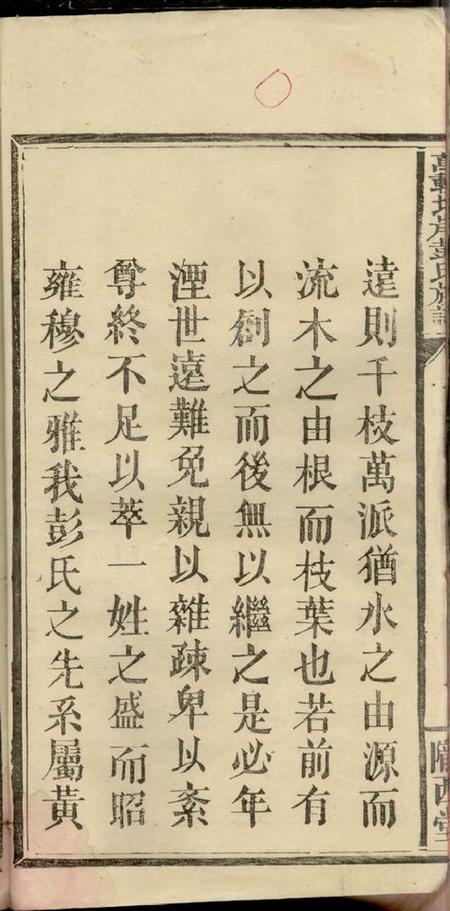 遠則千枝萬派猶水之由源而
流木之由根而枝葉也若前有
以創之而後無以繼之是必年
湮世遠難免親以雜疎卑以紊
尊終不足以萃一姓之盛而昭
雍穆之雅我彭氏之先系屬黃
彭氏族譜
隴西堂